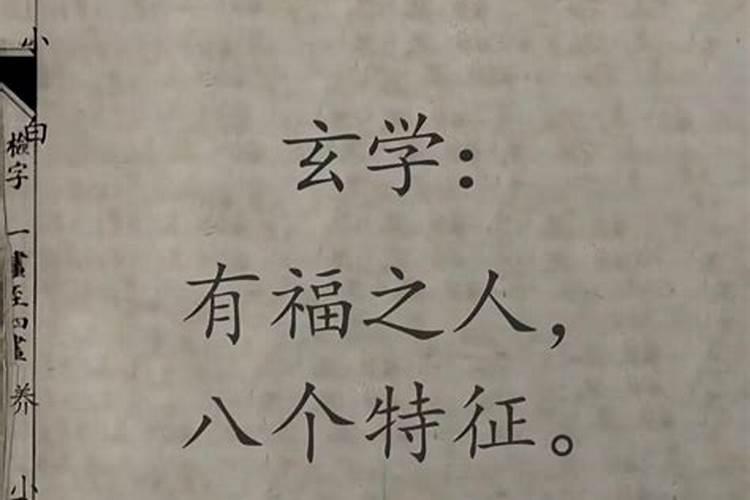 玄学：
有福之人，
八个特征。
小
白
檢字
一畫至四畫
养
小